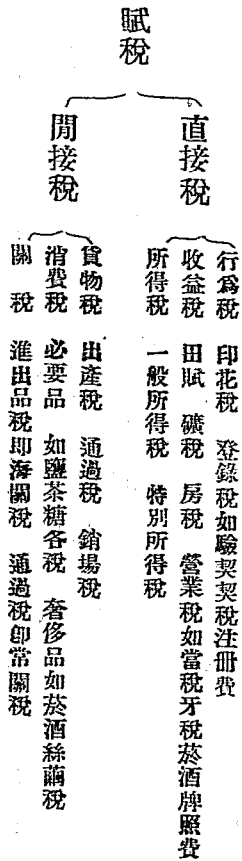 賦稅
直接稅
行爲稅 印花稅 登錄稅如驗契契稅注冊費
收益稅 田賦 礦稅 房稅 營業稅如當稅牙稅菸酒牌照費
所得稅 一般所得稅 特別所得稅
間接稅
貨物稅 出產稅 通過稅 銷場稅
消費稅 必要品 如鹽茶糖各稅 奢侈品如菸酒絲繭稅
關稅 進出品稅卽海關稅 通過稅卽常關稅